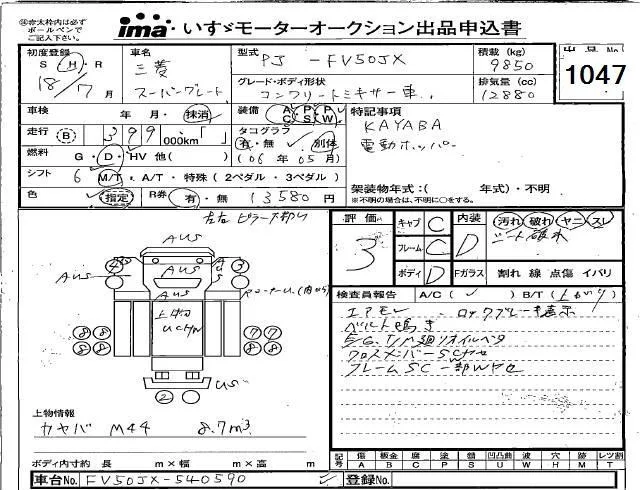 ※赤太枠内は必ずボールペンでご記入下さい。
ima いすゞモーターオークション出品申込書
出品No. 1047
初度登録 S・H・R 18/7月
車名 三菱 スーパーグレート
型式 PJ-FV50JX
積載(kg) 9850
グレード・ボディ形状 コンクリートミキサー車
排気量(cc) 12880
車検 年 月・抹消
装備 A/C P/S P/W
特記事項
KAYABA
電動ホッパー
走行 B 399 000km「 」
タコグラフ 有・無 別体 (06年05月)
燃料 G・D・HV 他( )
シフト 6 M/T・A/T・特殊(2ペダル・3ペダル)
架装物年式:( 年式)・不明
※不明の場合は、不明に○をする。
色 指定 R券 有・無 13580円
左右ピラーア部山
評価 3
キャブ C
フレーム C
ボディ D
内装 D
Fガラス
汚れ 破れ ヤニ スレ
シート破れ
割れ 線 点傷 イバリ
AUS
AUS
AUS
AUS
AUS
4 3
上物
UCHW
8 8 7 7
8 8 8 8
US
2
検査員報告 A/C( ✓ ) B/T(上がり)
エアモレ ロックブレーキ表示
ベルト鳴き
E/G T/M廻りオイルベタ
クロスメンバーSCヤセ
フレームSC一部Wヤセ
上物情報
カヤバ M44 8.7m³
ボディ内寸約 長 m×幅 m×高 m
記号 傷A 板金B 腐C 塗P 錆S 凹U 波W 穴H 跡M レンズ割T
車台No. FV50JX-540590
登録No.